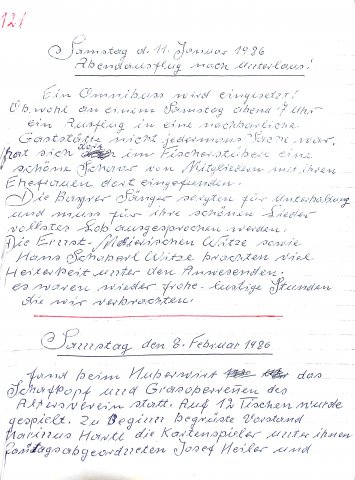 121
Samstag d. 11. Januar 1986
Abendausflug nach Unterlaus!
Ein Omnibuss wird eingesetzt!
Ob, wohl an einem Samstag abend 7 Uhr
ein Ausflug in eine nachbarliche
Gaststätte nicht jedermans Sache war,
hat sich doch im Fischerstüberl eine
schöne Schar von Mitgliedern mit ihren
Ehefrauen dort eingefunden.
Die Sänger sorgten für Unterhaltung
und muss für ihre schönen Lieder
vollstes Lob ausgesprochen werden.
Die Ernst- Witze sowie
Hans Schoberl Witze brachten viel
Heiterkeit unter den Anwesenden.
es waren wieder frohe- lustige Stunden
die wir verbrachten.
Samstag den 8. Februar 1986
fand beim Huberwirt das
Schafkopf und Grasoberrennen des
Altersverein statt. Auf 12 Tischen wurde
gespielt. Zu Beginn begrüste Vorstand
Marinus Hartl die Kartenspieler unter ihnen
Josef Heiler und